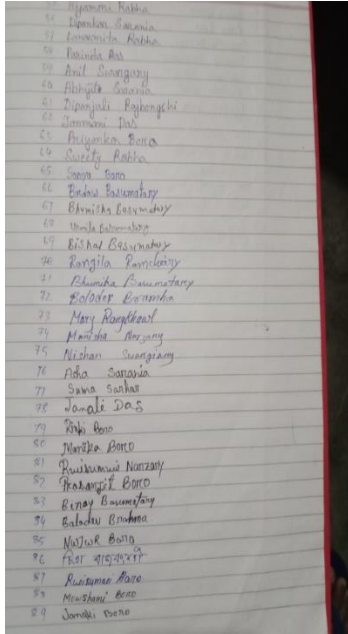 Rabha
Dipankar Sarania
Rabha
59 Das
59 Anil Swargiary
60 Abhijit Sarania
61 Dipanjali Rajbongshi
62 Das
63 Priyanka Boro
64 Sweety Rabha
65 Boro
66 Basumatary
67 Bhumika Basumatary
68 Basumatary
69 Bishal Basumatary
70 Rangila Ramchiary
71 Bhumika Basumatary
72 Bolodev Bramha
73 Mary Rangkhowl
74 Manisha Narzary
75 Nishan Swargiary
76 Asha Sarania
77 Sama Sarkar
78 Jonali Das
79 Rinki Boro
80 Monika Boro
81 Rwisumwi Narzary
82 Prasanjit Boro
83 Binay Basumatary
84 Baladev Brahma
85 Nwjwr Boro
86
87 Rwisumai
88 Mowshumi Boro
89 Janaki Boro